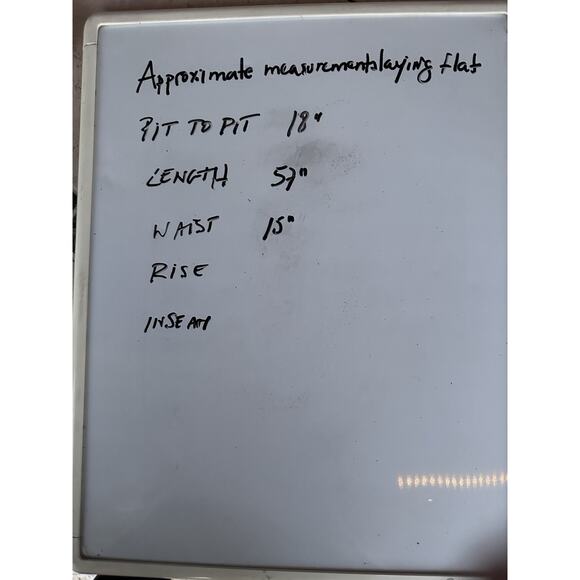 Approximate measurements laying flat
PIT TO PIT 18"
LENGTH 57"
WAIST 15"
RISE
INSEAM